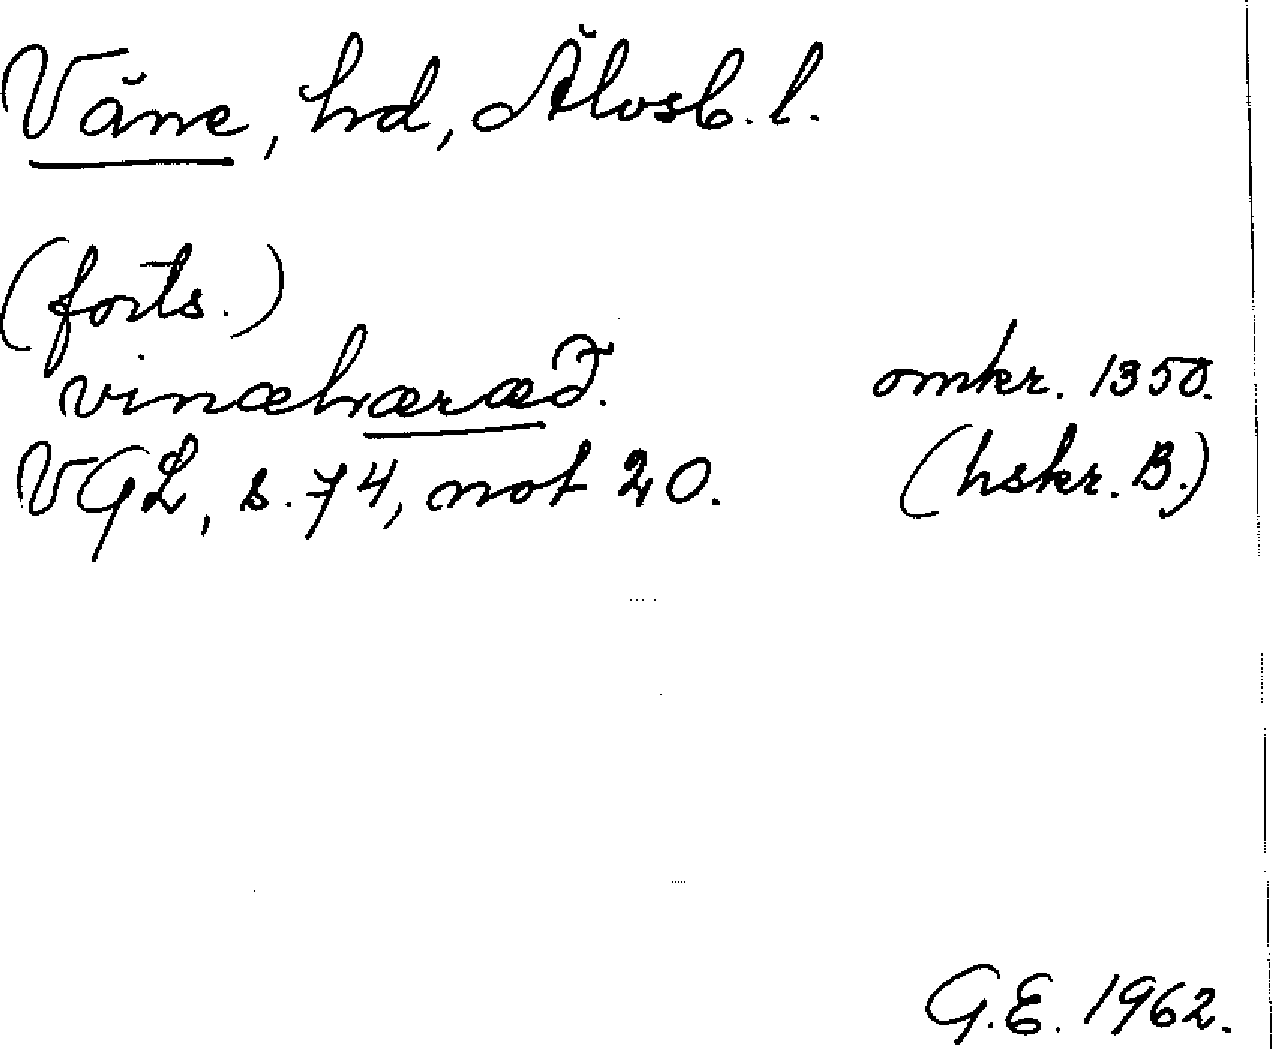 Väne, hd, Älvsb. l.
(forts.)
vinæhæræð. omkr. 1350.
VGL, s. 74, not 20. (hskr. B.)
G.E. 1962.